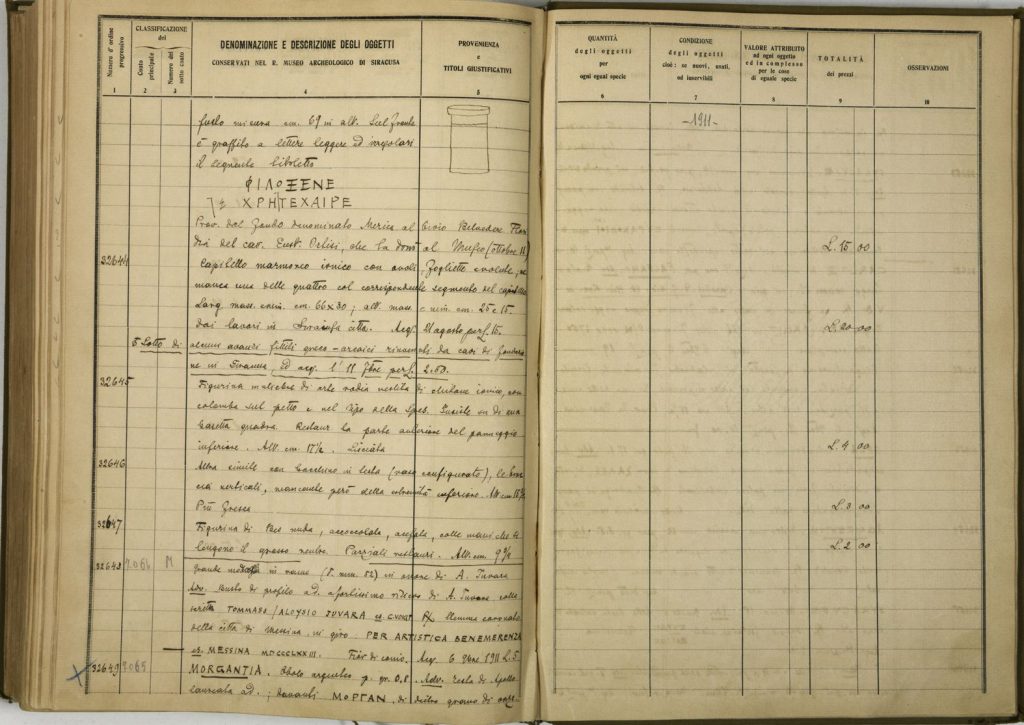 Numero d'ordine progressivo
CLASSIFICAZIONE
del
Conto principale
Numero del sotto conto
DENOMINAZIONE E DESCRIZIONE DEGLI OGGETTI
CONSERVATI NEL R. MUSEO ARCHEOLOGICO DI SIRACUSA
PROVENIENZA
e
TITOLI GIUSTIFICATIVI
1 2 3 4 5
fusto misura cm. 69 in alt. Sul fronte
è graffito a lettere leggere ed irregolari
il seguente titoletto
ΦΙΛΟΞΕΝΕ
ΧΡΗΤΕΧΑΙΡΕ
Prov. dal fondo denominato Merica al bivio Belvedere Flori
dia del cav. Eust. che la donò al Museo (ottobre 11)
32644 Capitello marmoreo ionico con ovoli, fogliette e volute;
manca una delle quattro col corrispondente segmento del capitello
Larg. mass. cm. 66x30; alt. mass. e min. cm. 25 e 15.
dai lavori in Siracusa città. Acq. agosto per £. 15.
È Lotto di alcuni avanzi fittili greco-arcaici rinvenuti da cavi di fondazio
ne in Siracusa, ed acq. l' 11 per £. 2.50.
32645 Figurina muliebre di arte rodia vestita di chitone ionico, con
colomba sul petto e nel tipo della Spes. Insiste su di una
basetta quadra. Restaur. la parte anteriore del panneggio
inferiore. Alt. cm. 17½. Lisciata
32646 Altra simile con in testa (vaso configurato), le brac
cia verticali, mancante però della estremità inferiore. Alt. cm. 15½
Più grossa
32647 Figurina di Bes nuda, accoccolata, acefala, colle mani che si
tengono il grosso ventre. Parziali restauri. Alt. cm. 9½
32648 7064 M Grande medaglia in rame (P. mm. 52) in onore di A. Juvara
Adv. Busto di profilo ad. a fortissimo rilievo di A. Juvara colla
scritta TOMMASO / ALOYSIO JUVARA es. C. VOIGT R/ Stemma coronato
della città di Messina. in giro PER ARTISTICA BENEMERENZA
es. MESSINA MDCCCLXXIII. Fior di conio. Acq. 6 1911 L. 5
32649 7065 MORGANTIA. Obolo argenteo p. gr. 0.8. Adv. testa di Apollo
laureata ad.; davanti ΜΟΡΓΑΝ. di dietro grano di orzo.
QUANTITÀ
degli oggetti
per
ogni egual specie
CONDIZIONE
degli oggetti
cioè: se nuovi, usati,
od inservibili
VALORE ATTRIBUITO
ad ogni oggetto
ed in complesso
per le cose
di eguale specie
TOTALITÀ
dei prezzi
OSSERVAZIONI
6 7 8 9 10
-1911-
L. 15 00
L. 20 00
L. 4 00
L. 3 00
L. 2 00